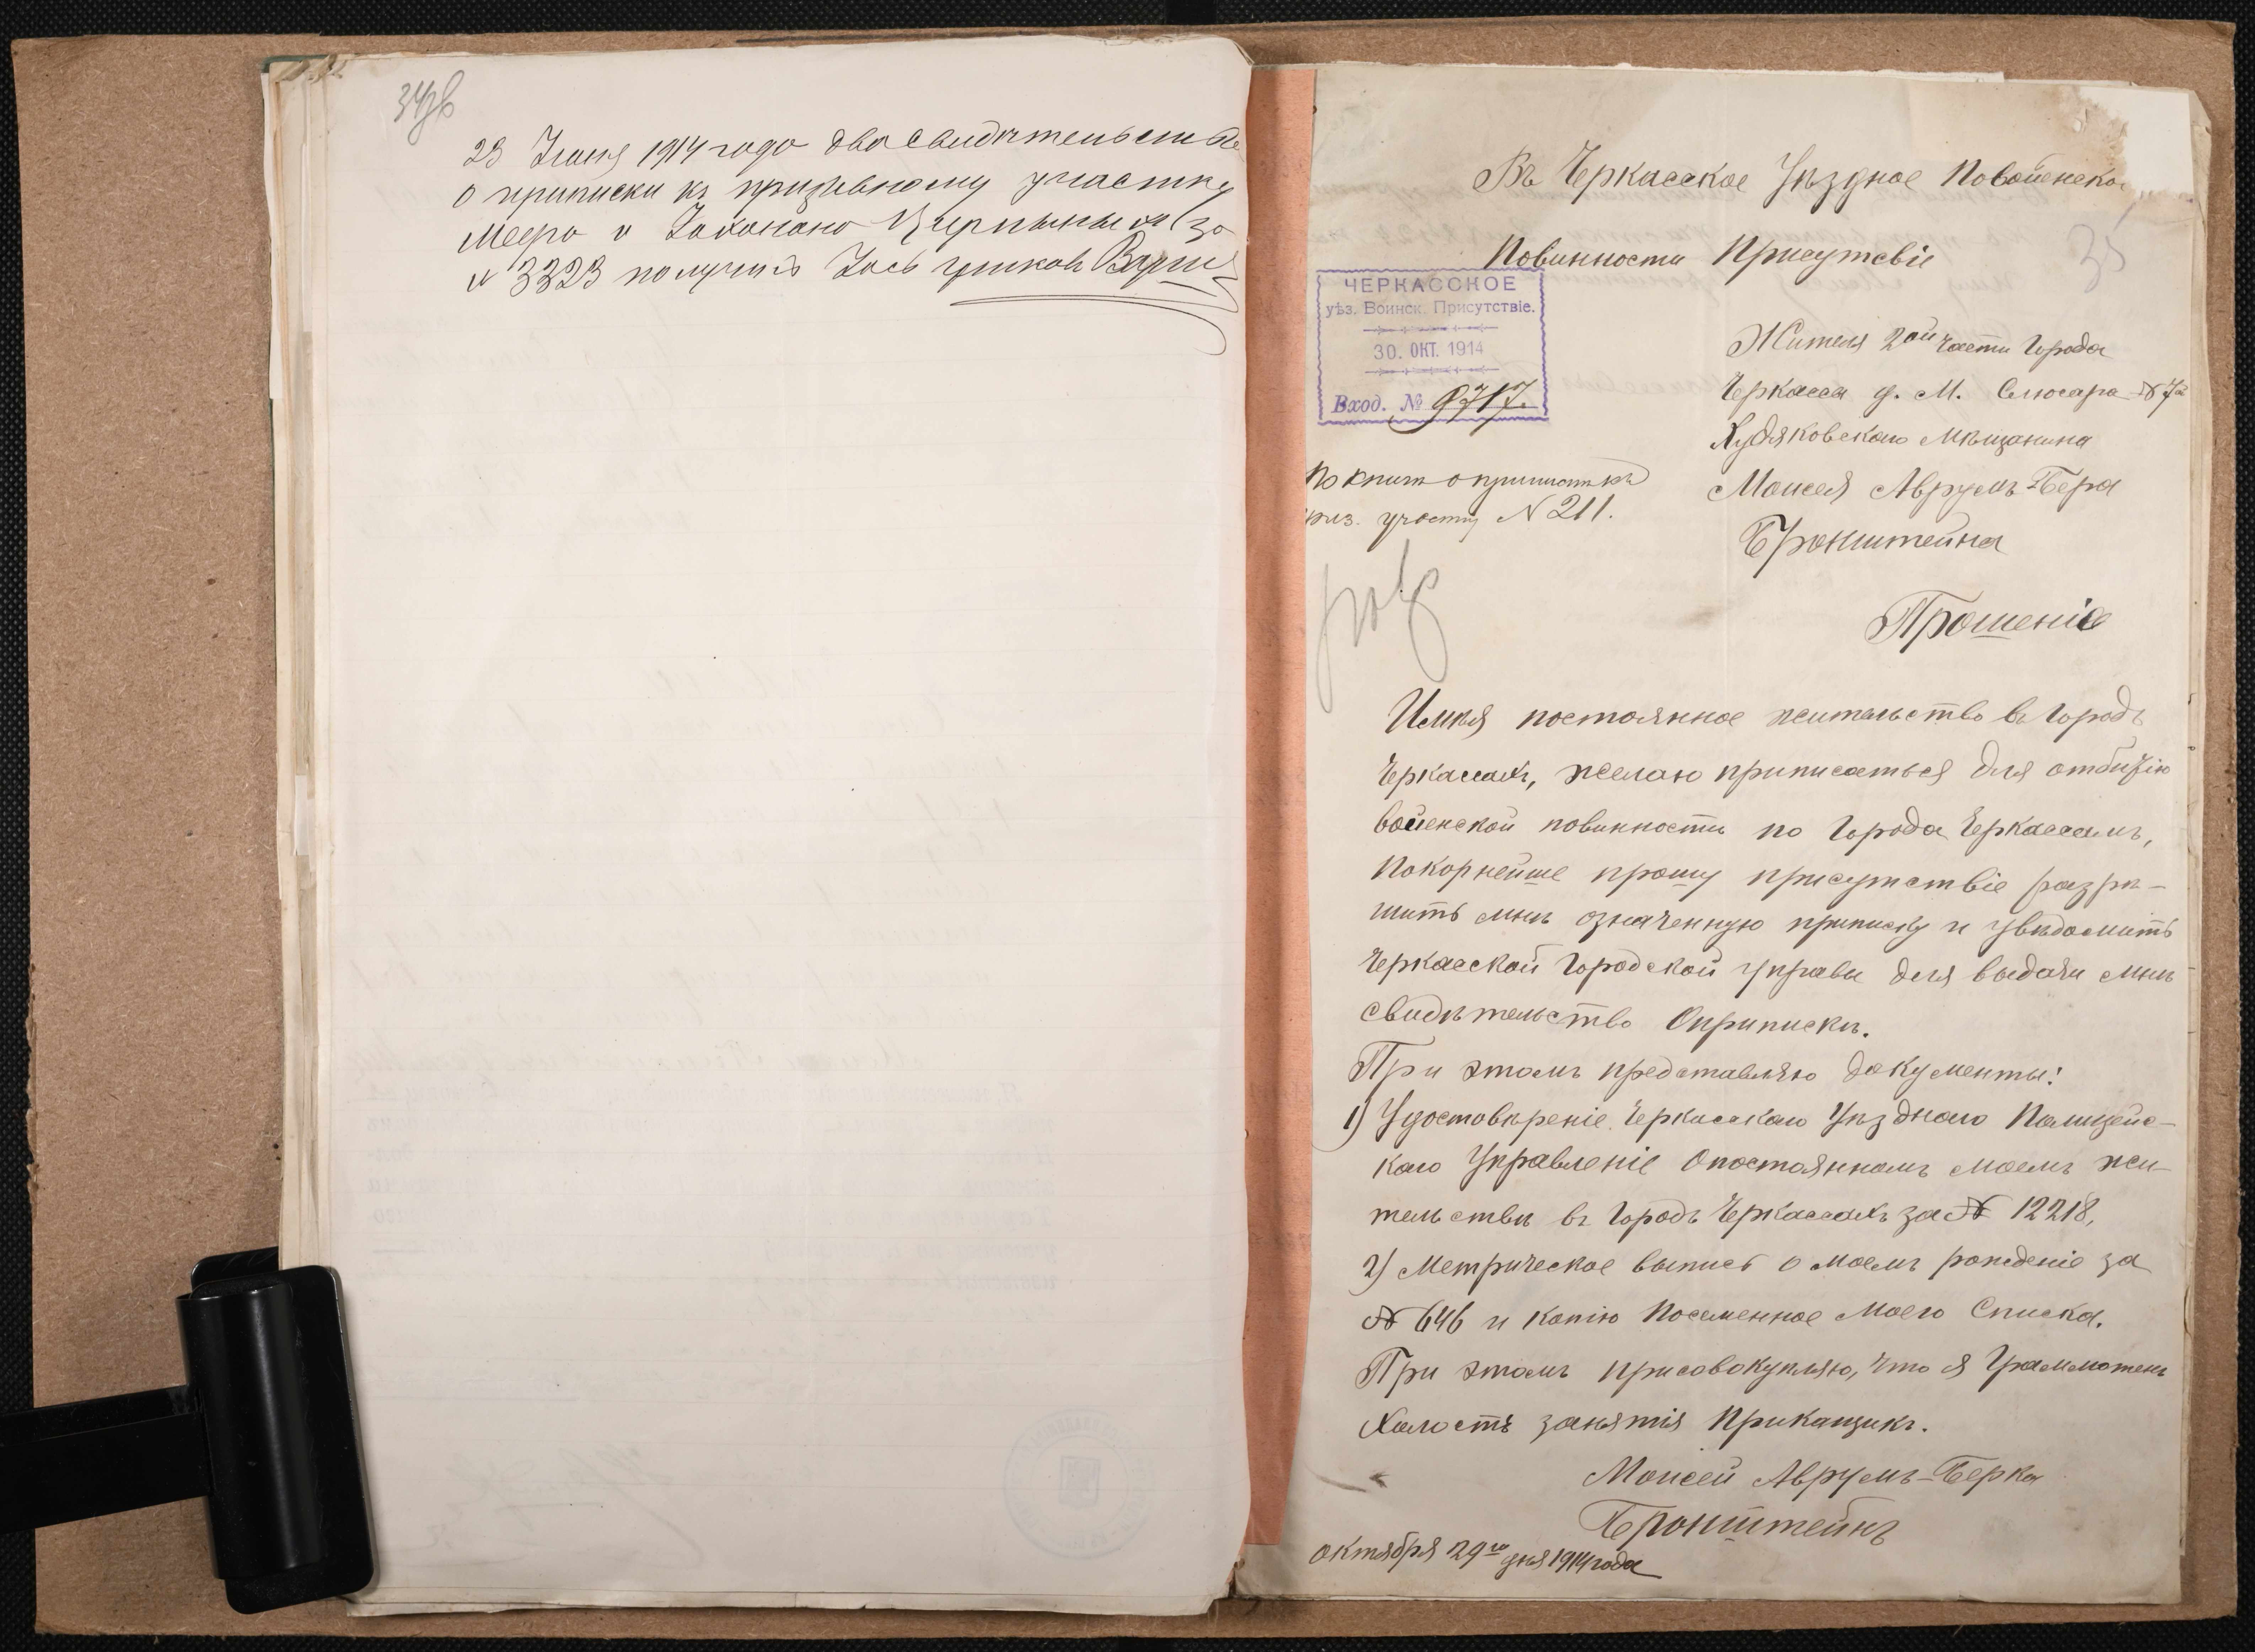 34об
23 Июня 1914 года два Свидѣтельства
о приписки къ призывному участку
Меера и
№ 3323 получилъ
35
Въ Черкасское Уѣздное Повоиенско
Повинности Присутсвіе
ЧЕРКАССКОЕ
уѣз. Воинск. Присутствіе.
30. ОКТ. 1914
Вход. № 9717.
Жителя 2ой части Города
Черкассы д. М. Слюсара №
Худяковскаго Мѣщанина
Моисея Аврумъ-Бера
Бронштейна
По книгѣ о припискѣ къ
приз. участку N 211.
Прошеніе
Имѣя постоянное жительство въ Городѣ
Черкассахъ, желаю приписаться для отбитію
воиенской повинности по Города Черкассамъ,
Покорнейше прошу присутствіе разрѣ-
шить мнѣ означенную приписку и увѣдомить
Черкасской Городской управы для выдачи мнѣ
свидѣтельство Оприпискѣ.
При этомъ представляю документы:
1) Удостовѣреніе Черкасскаго Уѣзднаго Полицейс-
каго Управленіе Опостоянномъ моемъ жи-
тельствѣ въ Городѣ Черкассахъ за № 12218,
2) Метрическое выпись о моемъ рожденіе за
№ 646 и копію Посеменное Моего Списка.
При этомъ присовокупляю, что я Грамматенъ
Холостъ занятія Приканщикъ.
Моисей Аврумъ-Берка
Бронштейнъ
октября 29го дня 1914 года